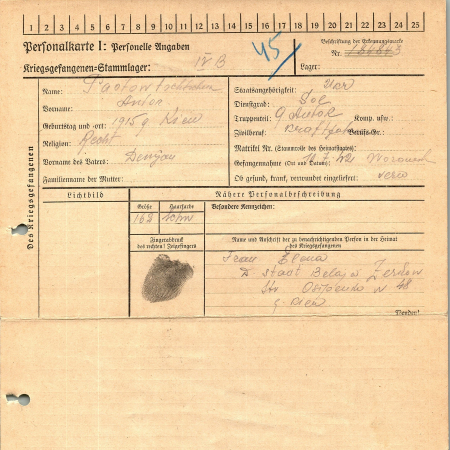 1 2 3 4 5 6 7 8 9 10 11 12 13 14 15 16 17 18 19 20 21 22 23 24 25
Personalkarte I: Personelle Angaben
45
Beschriftung der Erkennungsmarke
Nr.
Kriegsgefangenen-Stammlager: IV B
Lager:
Des Kriegsgefangenen
Name:
Vorname: Anton
Geburtstag und -ort: 1915 g Kiew
Religion: Recht
Vorname des Vaters:
Familienname der Mutter:
Staatsangehörigkeit: Ukr
Dienstgrad: Sol
Truppenteil: 9 Komp. usw.:
Zivilberuf: Berufs-Gr.:
Matrikel Nr. (Stammrolle des Heimatstaates):
Gefangennahme (Ort und Datum): 11.7.42
Ob gesund, krank, verwundet eingeliefert:
Lichtbild
Nähere Personalbeschreibung
Größe Haarfarbe
162
Besondere Kennzeichen:
Fingerabdruck
des rechten! Zeigefingers
Name und Anschrift der zu benachrichtigenden Person in der Heimat
des Kriegsgefangenen
Frau Elena
Stadt Belaja Zerkow
Str N 48
Wenden!